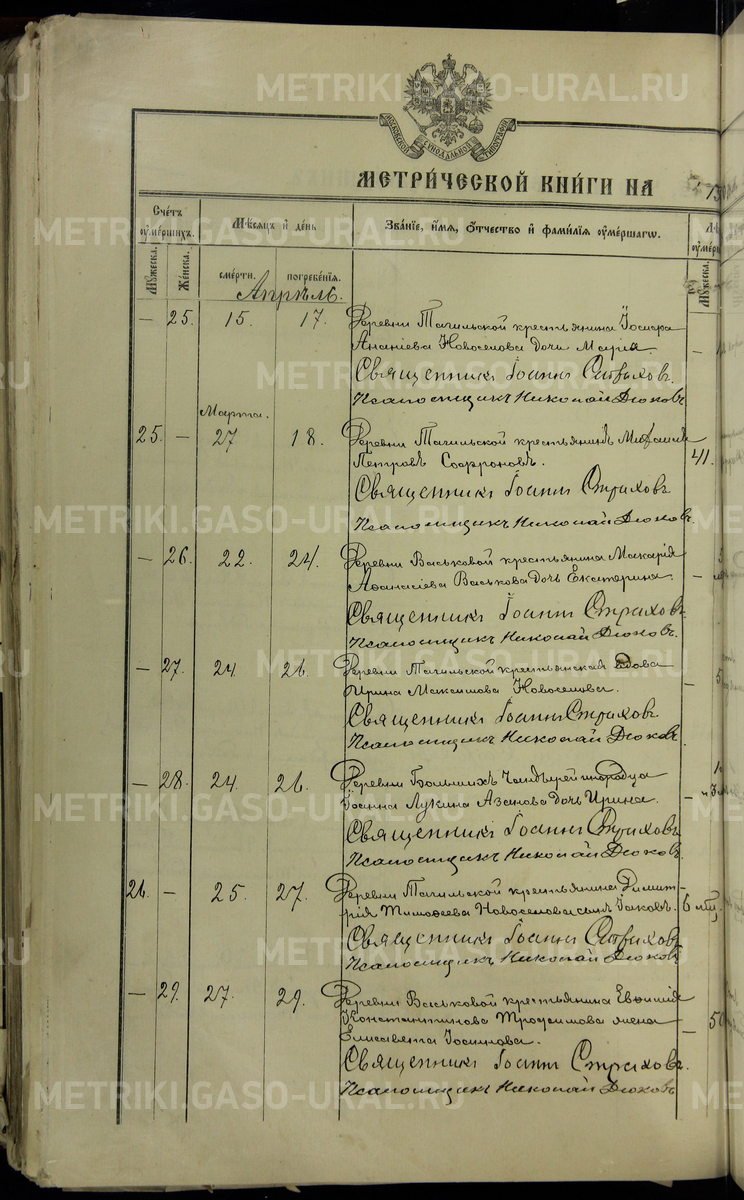 МОСКОВСКОЙ СѴНОДАЛЬНОЙ ТИПОГРАФІИ
МЕТРИ́ЧЕСКОЙ КНИ́ГИ НА
Счетъ ѹмершихъ.
Мѣсяцъ и день
Зва́нїе, и́мѧ, ѻ́тчество и҆ фами́лїѧ ѹмершагѡ.
Мꙋжеска.
Же́нска.
сме́рти.
погребе́нїѧ.
Мꙋжеска.
Апрѣль.
— 25. 15. 17. Деревни Тагильской крестьянина
Ананіева Новоселова дочь Марія.
Священникъ Іоаннъ Страховъ.
Псаломщикъ Николай Дюковъ
Марта.
25. — 27 18. Деревни Тагильской крестьянинъ Михаилъ 41.
Петровъ Софроновъ.
Священникъ Іоаннъ Страховъ
Псаломщикъ Николай Дюковъ.
— 26. 22. 24. Деревни Васьковой крестьянина Макарія
Аѳанасіева Васькова дочь Екатерина.
Священникъ Іоаннъ Страховъ
Псаломщикъ Николай Дюковъ.
— 27. 24. 26. Деревни Тагильской крестьянская вдова — 5
Ирина Максимова Новоселова.
Священникъ Іоаннъ Страховъ.
Псаломщикъ Николай Дюковъ
— 28. 24. 26. Деревни Большихъ инородца
Іоанна Лукина Азанова дочь Ирина.
Священникъ Іоаннъ Страховъ
Псаломщикъ Николай Дюковъ
26. — 25. 27. Деревни Тагильской крестьянина Димит-
рія Тимоѳеева Новоселова сынъ Іаковъ. 6
Священникъ Іоаннъ Страховъ
Псаломщикъ Николай Дюковъ
— 29. 27. 29. Деревни Васьковой крестьянина Евѳимія
Константинова Трофимова жена — 50
Елисавета Іосифова.
Священникъ Іоаннъ Страховъ.
Псаломщикъ Николай Дюковъ
METRIKI.GASO-URAL.RU